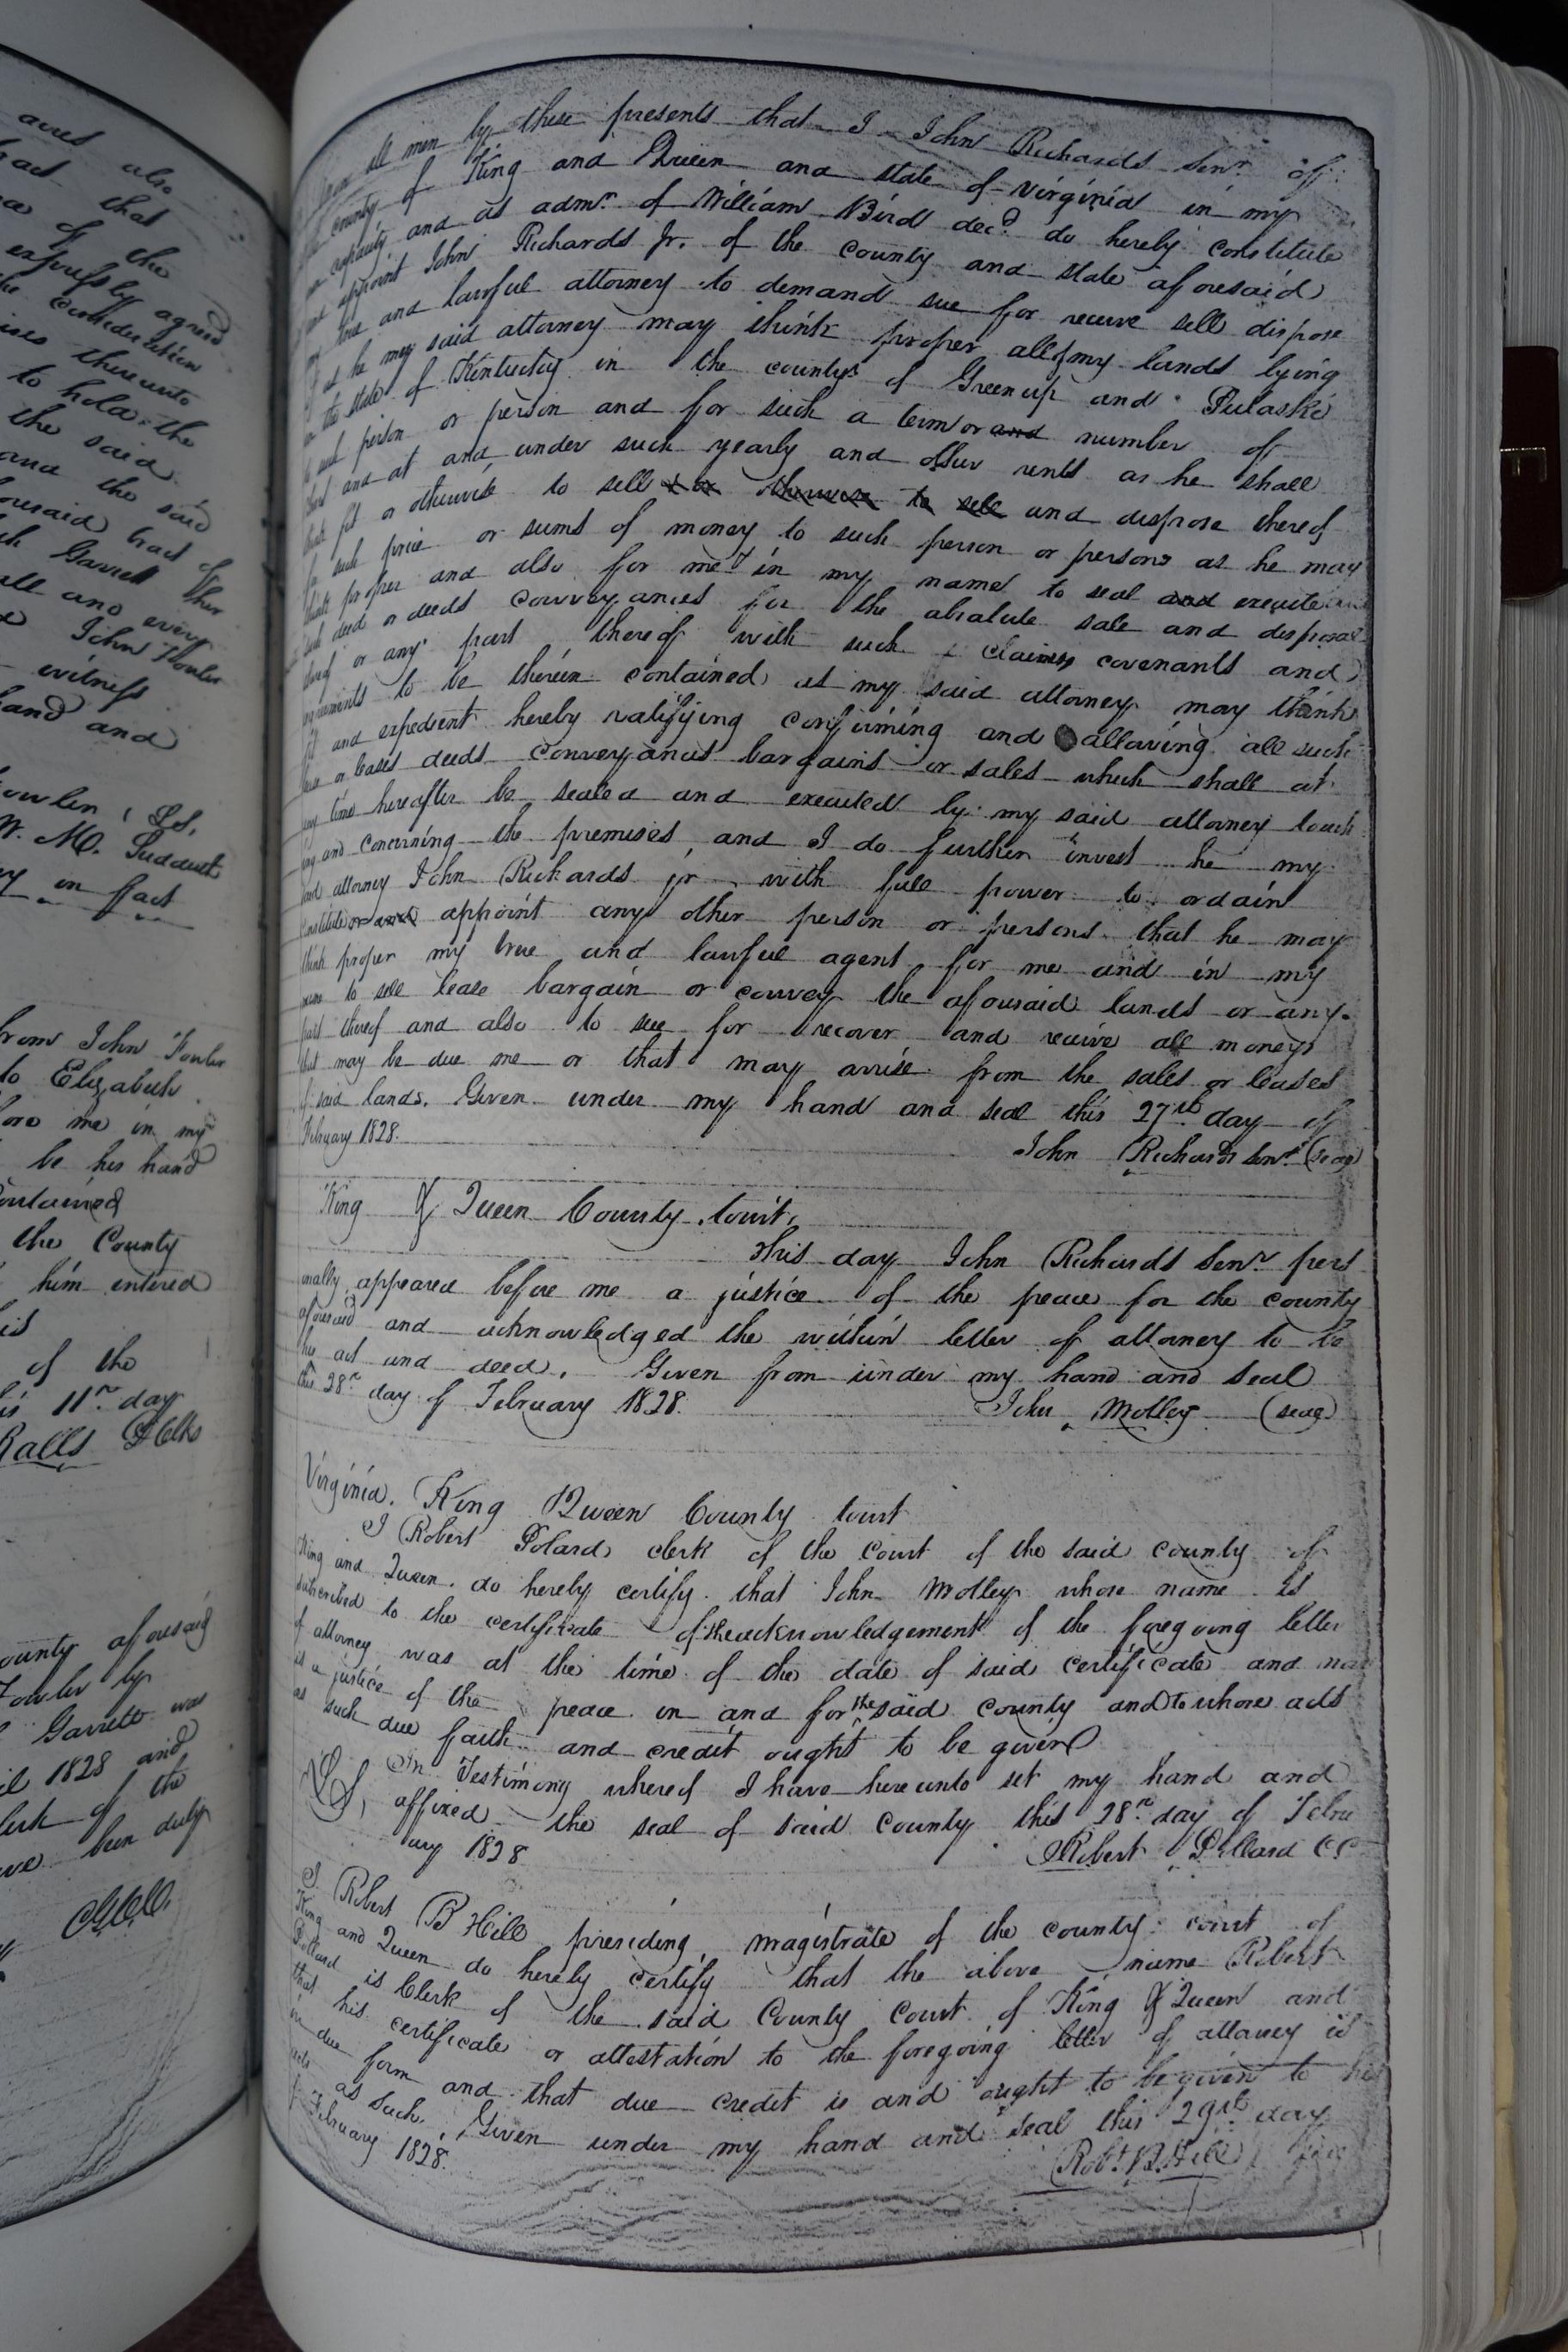 acres also
that
of the
expressly agreed
the consideration
thereunto
to hold the
the said
and the said
aforesaid tract of
Garrett
all and every
John Fowler
witness
hand and
Fowler LS.
W. M. Sudduth
in fact
from John Fowler
to Elizabeth
me in my
be his hand
contained
the County
him entered
of the
11th day
Ralls
County aforesaid
Fowler by
Garrett was
1828 and
of the
been duly
all men by these presents that I John Richards Senr. of
county of King and Queen and state of Virginia in my
own capacity and as admr. of William Bird decd. do hereby constitute
and appoint John Richards Jr. of the county and state aforesaid
my true and lawful attorney to demand sue for receive sell dispose
of as he my said attorney may think proper all of my lands lying
in the state of Kentucky in the countys of Greenup and Pulaski
to such person or person and for such a term or and number of
and at and under such yearly and other rents as he shall
think fit or otherwise to sell & or otherwise to sell and dispose thereof
for such price or sums of money to such person or persons as he may
think proper and also for me & in my name to seal and execute
such deed or deeds conveyances for the absolute sale and disposal
thereof or any part thereof with such claims covenants and
agreements to be therein contained as my said attorney may think
fit and expedient hereby ratifying confirming and allowing all such
lease or leases deeds conveyances bargains or sales which shall at
any time hereafter be sealed and executed by my said attorney touch
ing and concerning the premises, and I do further invest he my
said attorney John Richards jr. with full power to ordain
constitute or and appoint any other person or persons that he may
think proper my true and lawful agent for me and in my
name to sell lease bargain or convey the aforesaid lands or any
part thereof and also to sue for recover and receive all moneys
that may be due me or that may arise from the sales or leases
of said lands. Given under my hand and seal this 27th day of
February 1828.
John Richards Senr. (seal)
King & Queen County Court,
This day John Richards Senr pers
onally appeared before me a justice of the peace for the county
aforesaid and acknowledged the within letter of attorney to be
his act and deed. Given from under my hand and seal
this 28th day of February 1828.
John Motley (seal)
Virginia. King Queen County Court
I Robert Polard clerk of the court of the said county of
King and Queen do hereby certify that John Motley whose name is
subscribed to the certificate of the acknowledgement of the foregoing letter
of attorney was at the time of the date of said certificate and now
is a justice of the peace in and for the said county and to whose acts
as such due faith and credit ought to be given
LS, In Testimony whereof I have hereunto set my hand and
affixed the seal of said county this 28th day of Febru
ary 1828
Robert Pollard CC
I Robert B Hill presiding magistrate of the county court of
King and Queen do hereby certify that the above name Robert
Pollard is Clerk of the said County Court of King & Queen and
that his certificate or attestation to the foregoing letter of attorney is
in due form and that due credit is and ought to be given to his
acts as such. Given under my hand and seal this 29th day
of February 1828.
Robt. B. Hill